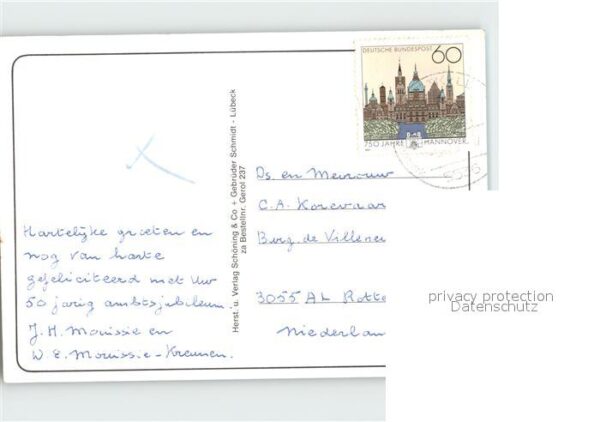 DEUTSCHE BUNDESPOST 60
750 JAHRE HANNOVER
Hartelijke groeten en
nog van harte
gefeliciteerd met Uw
50 jarig ambtsjubileum.
J.H. Mouissie en
W E. Mouissie-Kremen.
Herst. u. Verlag Schöning & Co + Gebrüder Schmidt - Lübeck
za Bestellnr. Gerol 237
Ds. en Mevrouw
C.A. Korevaar
Burg. de Villeneu
3055 AL Rotte
Niederlan
privacy protection
Datenschutz